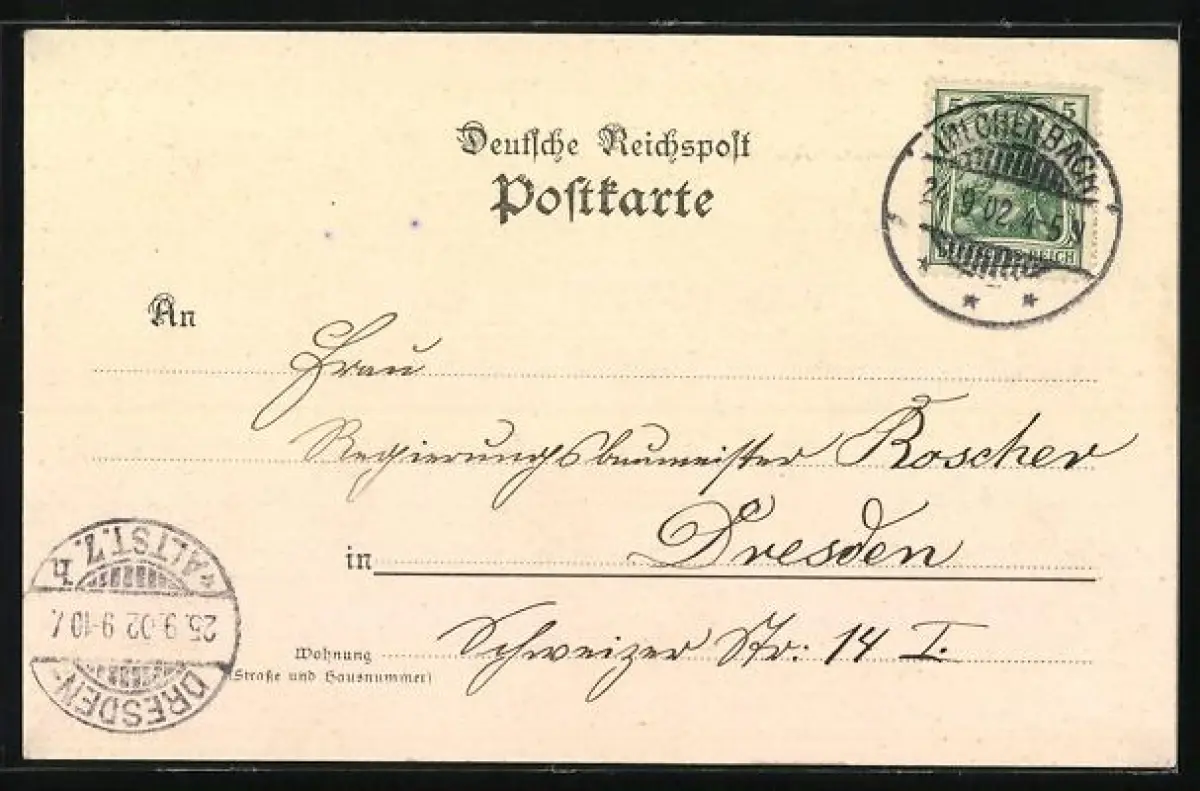 Deutsche Reichspost
Postkarte
5 5
REICH
24 9 02 4-5 N
An
Frau
Regierungsbaumeister Roscher
in Dresden
Schweizer Str. 14 I.
Wohnung
(Straße und Hausnummer)
DRESDEN-
25. 9. 02 9-10 V.
*ALTST. 7. h